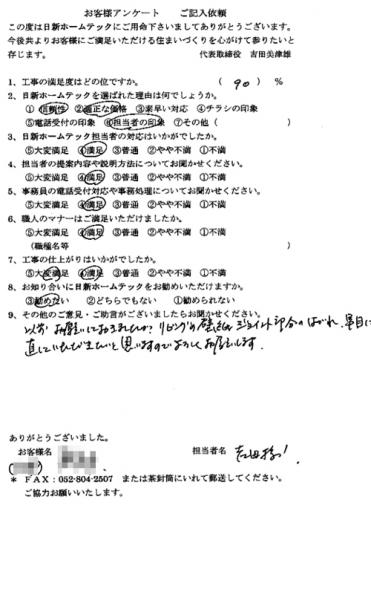 お客様アンケート　ご記入依頼
この度は日新ホームテックにご用命下さいましてありがとうございます。
今後共よりお客様にご満足いただける住まいづくりを心がけて参りたいと
存じます。　代表取締役　吉田美津雄
1．工事の満足度はどの位ですか。　（　90　）　％
2．日新ホームテックを選ばれた理由は何でしょうか。
①信頼性　②適正な価格　③素早い対応　④チラシの印象
⑤電話受付の印象　⑥担当者の印象　⑦その他（　）
3．日新ホームテック担当者の対応はいかがでしたか。
⑤大変満足　④満足　③普通　②やや不満　①不満
4．担当者の提案内容や説明方法についてお聞かせください。
⑤大変満足　④満足　③普通　②やや不満　①不満
5．事務員の電話受付対応や事務処理についてお聞かせください。
⑤大変満足　④満足　③普通　②やや不満　①不満
6．職人のマナーはご満足いただけましたか。
⑤大変満足　④満足　③普通　②やや不満　①不満
（職種名等　）
7．工事の仕上がりはいかがでしたか。
⑤大変満足　④満足　③普通　②やや不満　①不満
8．お知り合いに日新ホームテックをお勧めいただけますか。
③勧めたい　②どちらでもない　①勧められない
9．その他のご意見・ご助言がございましたらお聞かせください。
リビングの壁紙ジョイント部分のはがれ、早目に
直していただきたいと思いますのでよろしくお願いします。
ありがとうございました。
お客様名　担当者名
＊　ＦＡＸ：052-804-2507　または茶封筒にいれて郵送してください。
ご協力お願いいたします。